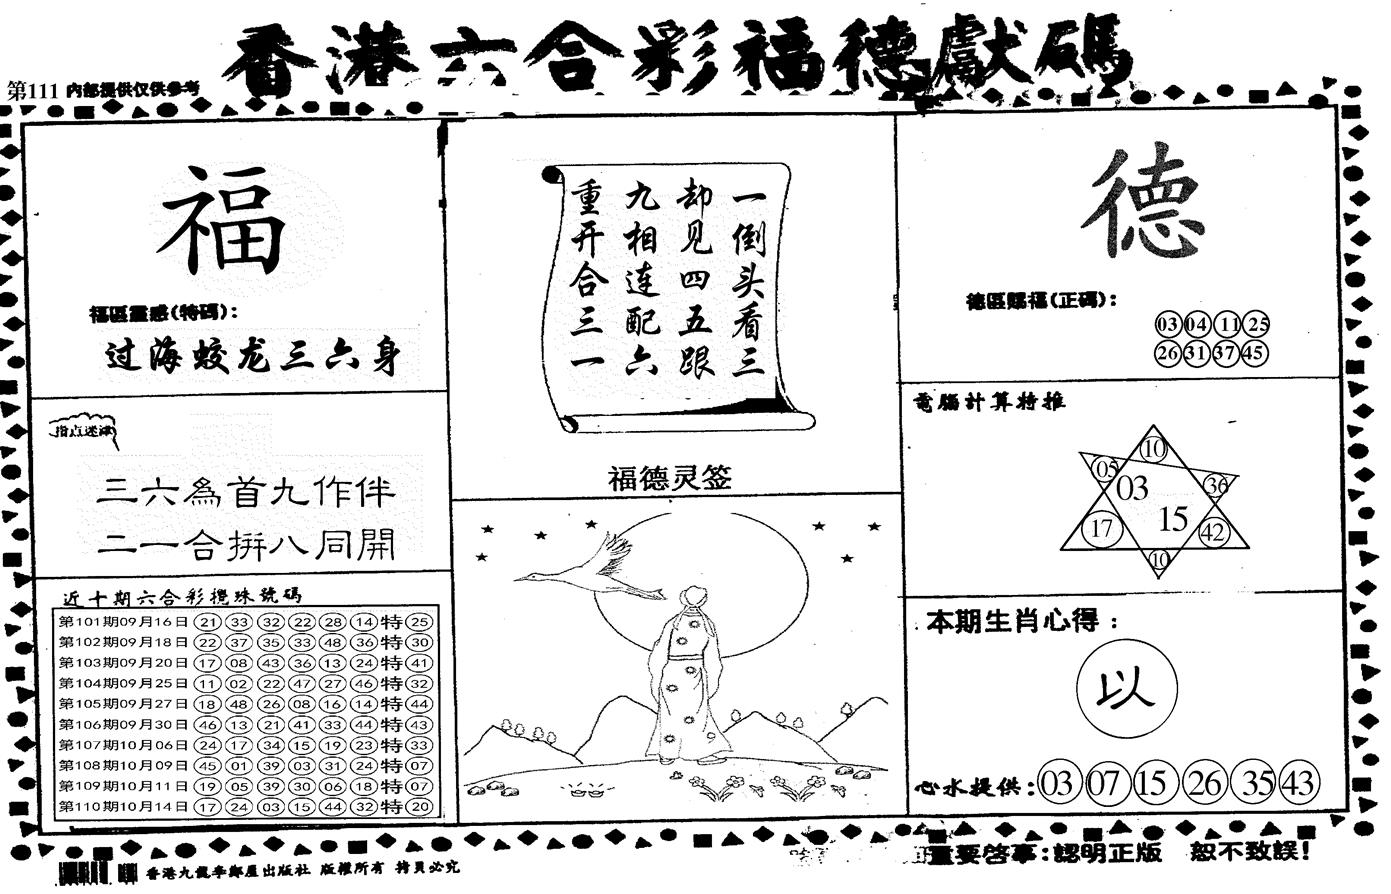 香港六合彩福德獻碼
第111 内部提供仅供参考
福
福區靈感(特碼):
过海蛟龙三六身
指点迷津
三六為首九作伴
二一合拼八同開
近十期六合彩攪珠號碼
第101期09月16日 21 33 32 22 28 14 特 25
第102期09月18日 22 37 35 33 48 36 特 30
第103期09月20日 17 08 43 36 13 24 特 41
第104期09月25日 11 02 22 47 27 46 特 32
第105期09月27日 18 48 26 08 16 14 特 44
第106期09月30日 46 13 21 41 33 44 特 43
第107期10月06日 24 17 34 15 19 23 特 33
第108期10月09日 45 01 39 03 31 24 特 07
第109期10月11日 19 05 39 30 06 18 特 07
第110期10月14日 17 24 03 15 44 32 特 20
一倒头看三
却见四五跟
九相连配六
重开合三一
福德灵签
德
德區賜福(正碼):
03 04 11 25
26 31 37 45
電腦計算特推
10
05 03 36
17 15 42
10
本期生肖心得:
以
心水提供: 03 07 15 26 35 43
重要啓事:認明正版 恕不致誤!
香港九龍李鄭屋出版社 版權所有 拷貝必究